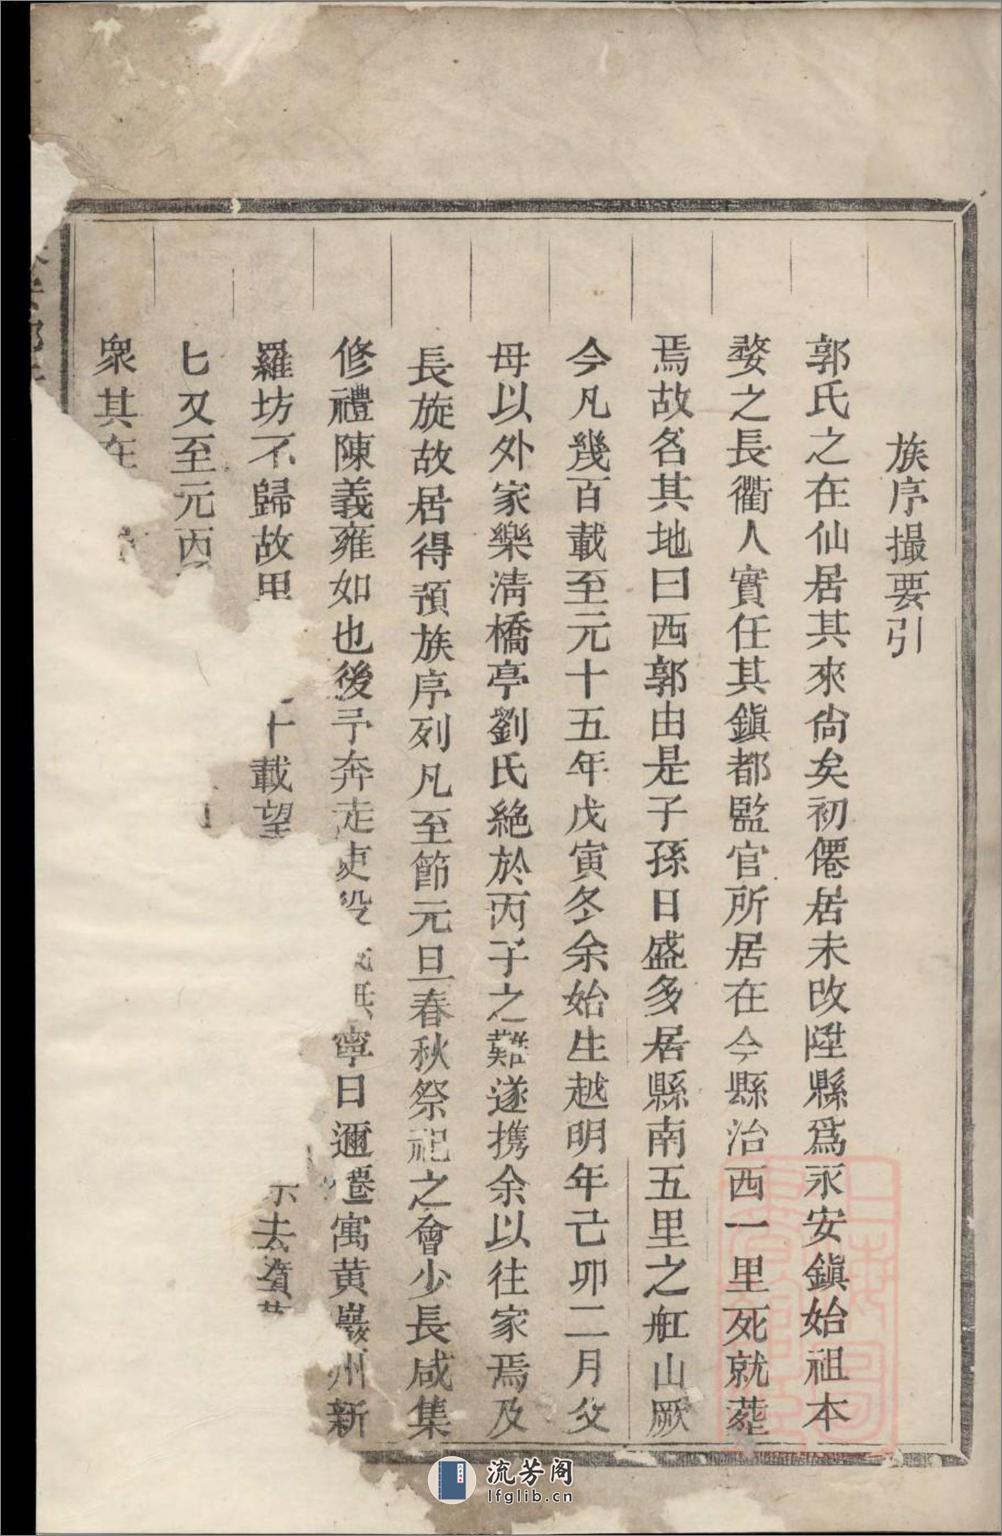 族序撮要引
郭氏之在仙居其來尙矣初僊居未改陞縣爲永安鎭始祖本
婺之長衢人實任其鎭都監官所居在今縣治西一里死就葬
焉故名其地曰西郭由是子孫日盛多居縣南五里之舡山厥
今凡幾百載至元十五年戊寅冬余始生越明年己卯二月父
母以外家樂淸橋亭劉氏絶於丙子之難遂携余以往家焉及
長旋故居得預族序列凡至節元旦春秋祭祀之會少長咸集
修禮陳義雍如也後予奔走吏役寧日邇遷寓黄巖州新
羅坊不歸故里十載望示去
七又至元丙
衆其在
流芳阁
lfglib.cn